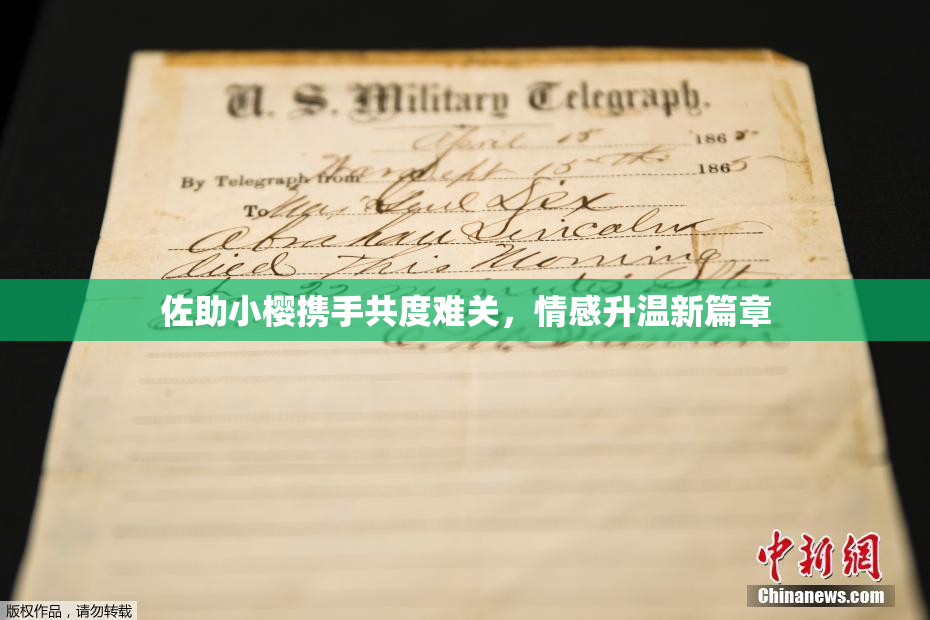 U. S. Military Telegraph.
April 15 1865
By Telegraph from War Dept 15th 1865
To Maj Genl Dix
Abraham Lincoln
died This Morning
22 minutes after
佐助小樱携手共度难关，情感升温新篇章
E. M. Stanton
中新网
Chinanews.com
版权作品，请勿转载